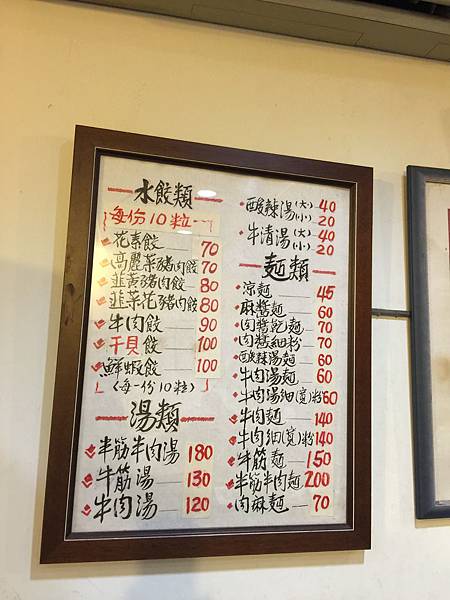 水餃類
每份10粒
花素餃 70
高麗菜豬肉餃 70
韭黃豬肉餃 80
韭菜花豬肉餃 80
牛肉餃 90
干貝餃 100
鮮蝦餃 100
(每一份10粒)
湯類
半筋半肉湯 180
牛筋湯 130
牛肉湯 120
酸辣湯(大) 40
(小) 20
牛清湯(大) 40
(小) 20
麵類
涼麵 45
麻醬麵 60
肉醬乾麵 70
肉醬細粉 70
酸辣湯麵 60
牛肉湯麵 60
牛肉湯細(寬)粉 60
牛肉麵 140
牛肉細(寬)粉 140
牛筋麵 150
半筋半肉麵 200
肉麻麵 70